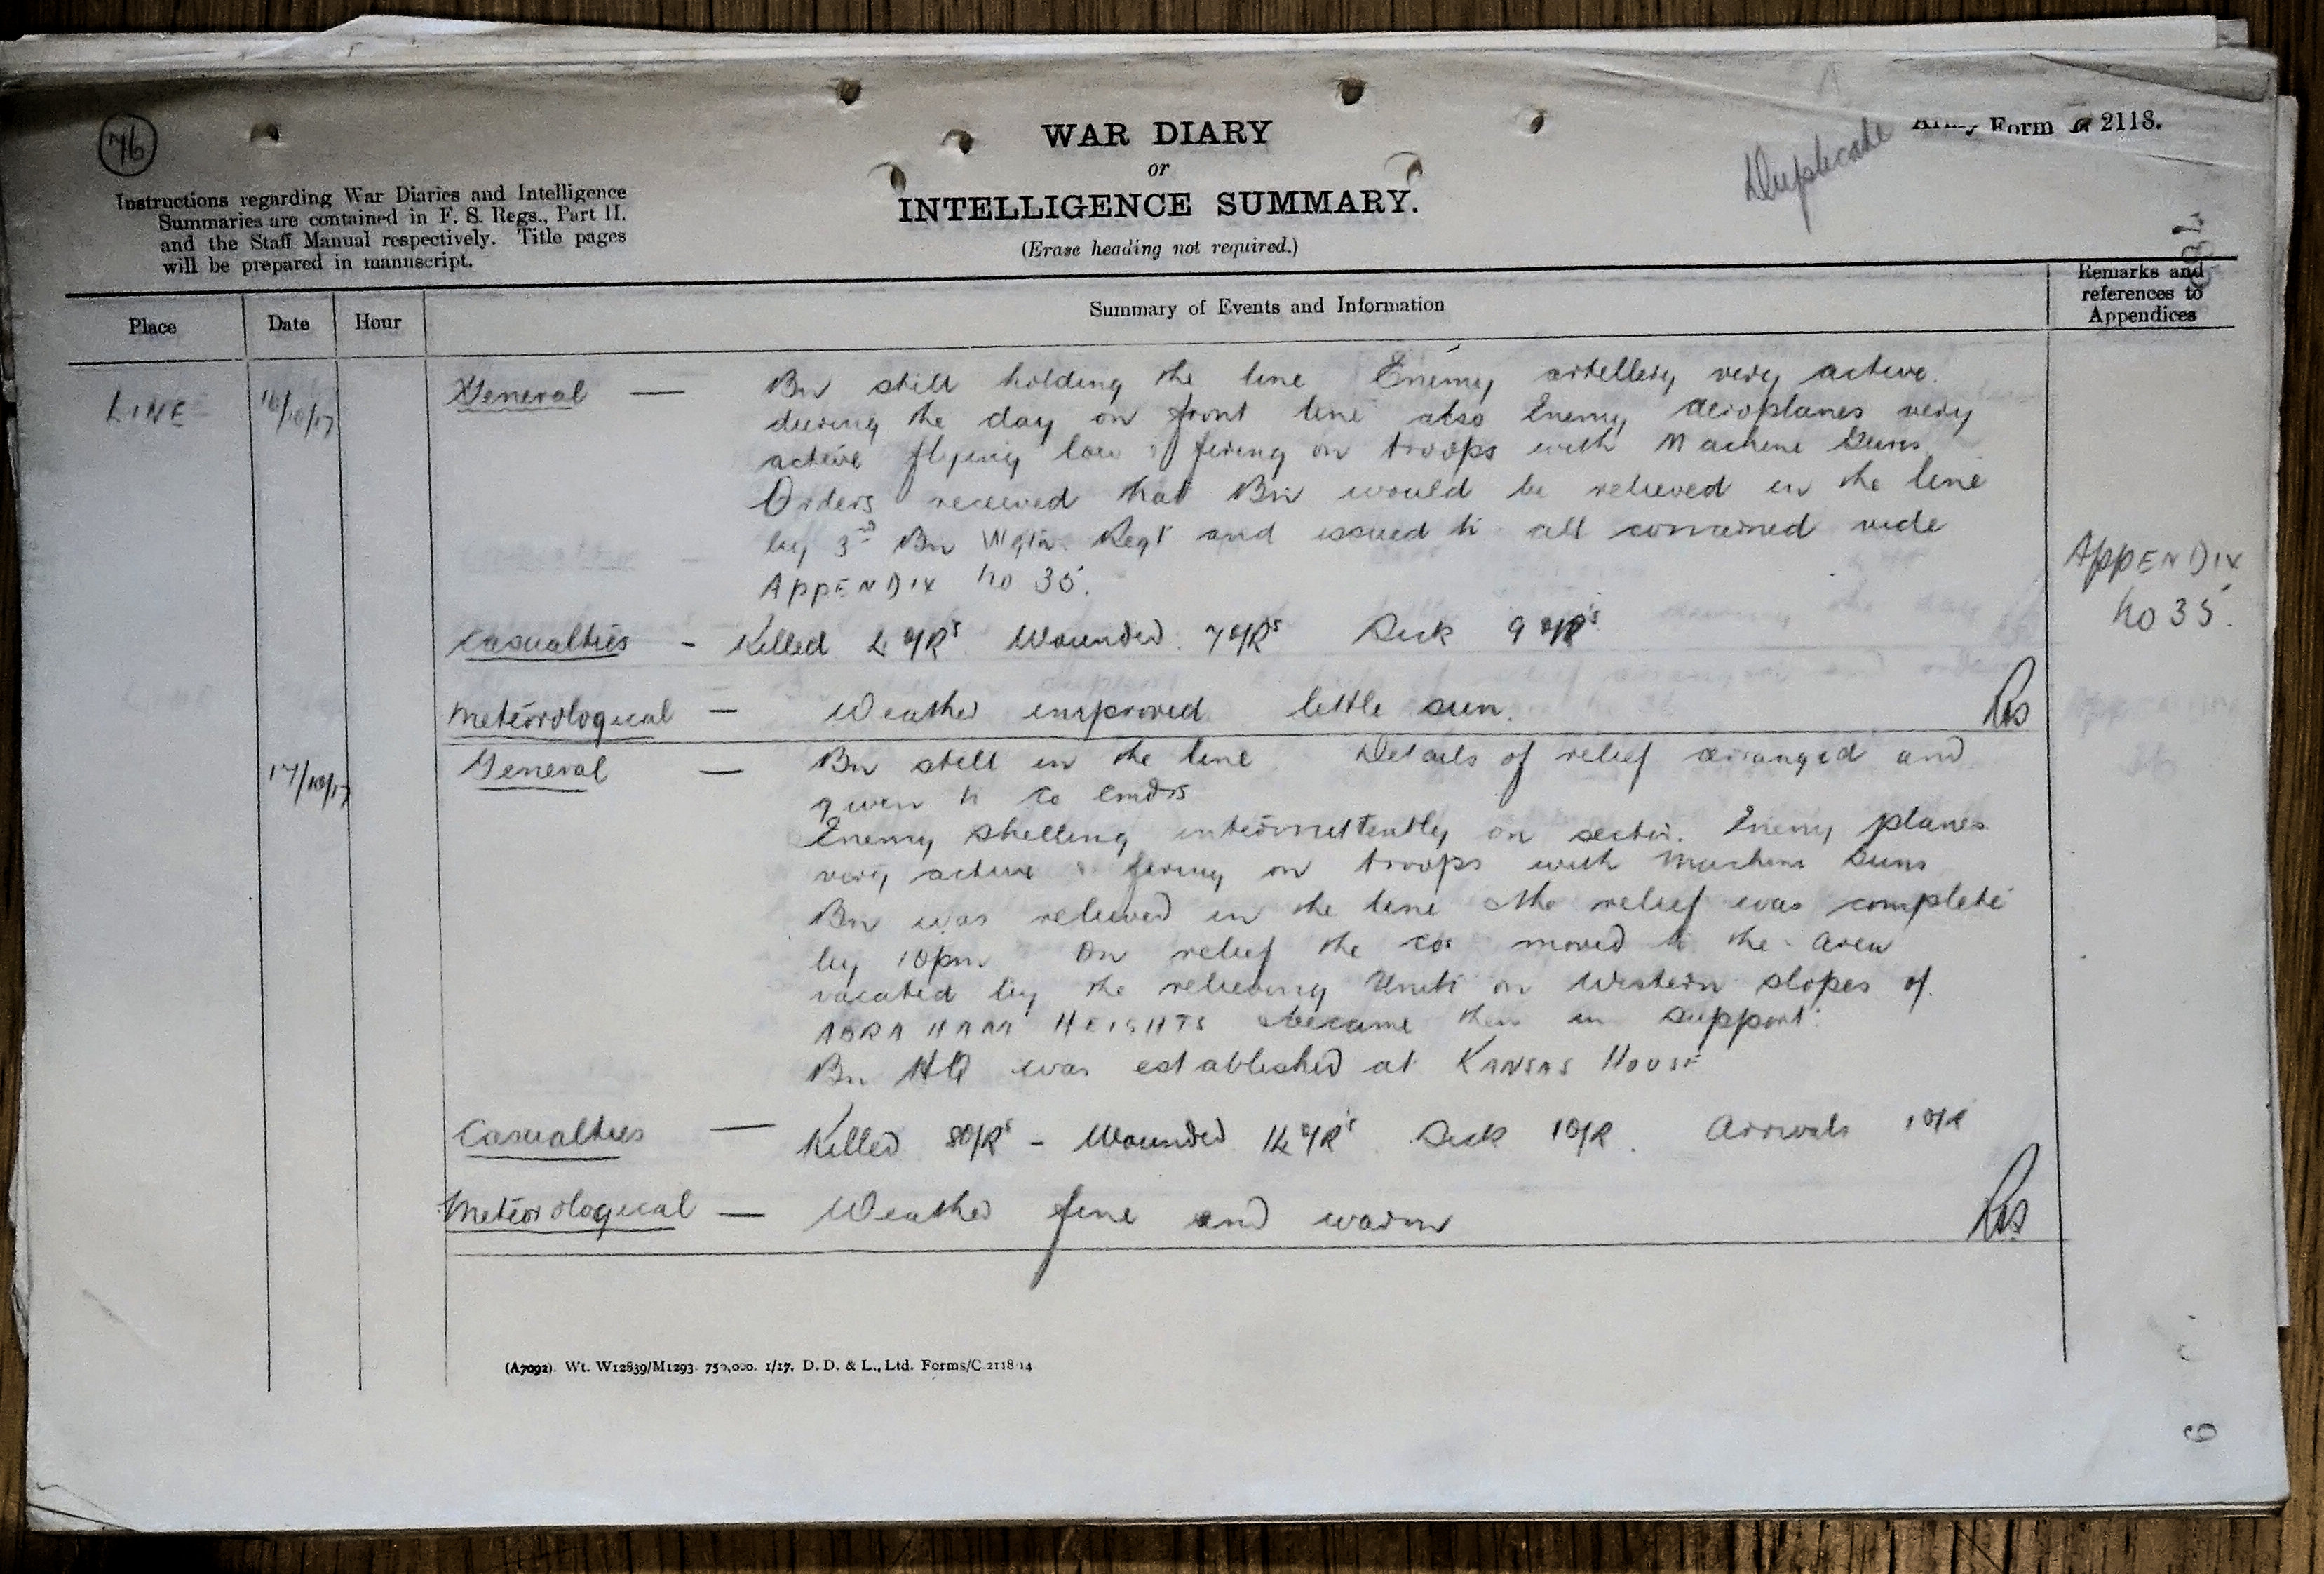 76
WAR DIARY
or
INTELLIGENCE SUMMARY.
(Erase heading not required.)
Duplicate
Army Form 2118.
Instructions regarding War Diaries and Intelligence
Summaries are contained in F. S. Regs., Part II.
and the Staff Manual respectively. Title pages
will be prepared in manuscript.
Place Date Hour Summary of Events and Information Remarks and references to Appendices
LINE 16/10/17 General — Bn still holding the line Enemy artillery very active
during the day on front line also Enemy Aeroplanes very
active flying low & firing on troops with Machine Guns
Orders received that Bn would be relieved in the line
by 3rd Bn Wgtn. Regt and issued to all concerned vide
APPENDIX No 35.
APPENDIX
No 35.
Casualties - Killed 2 O/R's Wounded 7 O/R's Sick 9 O/R's
Meteorological — Weather improved little sun.
17/10/17 General — Bn still in the line Details of relief arranged and
given to Co Cmdrs
Enemy shelling intermittently on sector. Enemy planes
very active & firing on troops with Machine Guns
Bn was relieved in the line the relief was complete
by 10pm On relief the Cos moved to the area
vacated by the relieving Unit on Western slopes of
ABRAHAM HEIGHTS & became then in support.
Bn HQ was established at KANSAS HOUSE
Casualties — Killed 8 O/R's - Wounded 12 O/R's Sick 1 O/R. Arrivals 1 O/R
Meteorological — Weather fine and warm
(A7092). Wt. W12839/M1293. 750,000. 1/17. D. D. & L., Ltd. Forms/C.2118/14